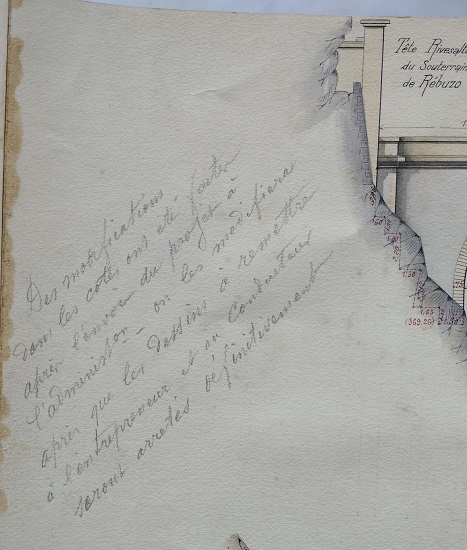 Tête Rivesalt
du Souterrain
de Rébuzo
Des modifications
dans les côtes ont été faites
après l'envoi du projet à
l'administion on les modifiera
après que les dessins à remettre
à l'entrepreneur et au Conducteur
seront arretés définitivement
1,50
1,65
(369,26)